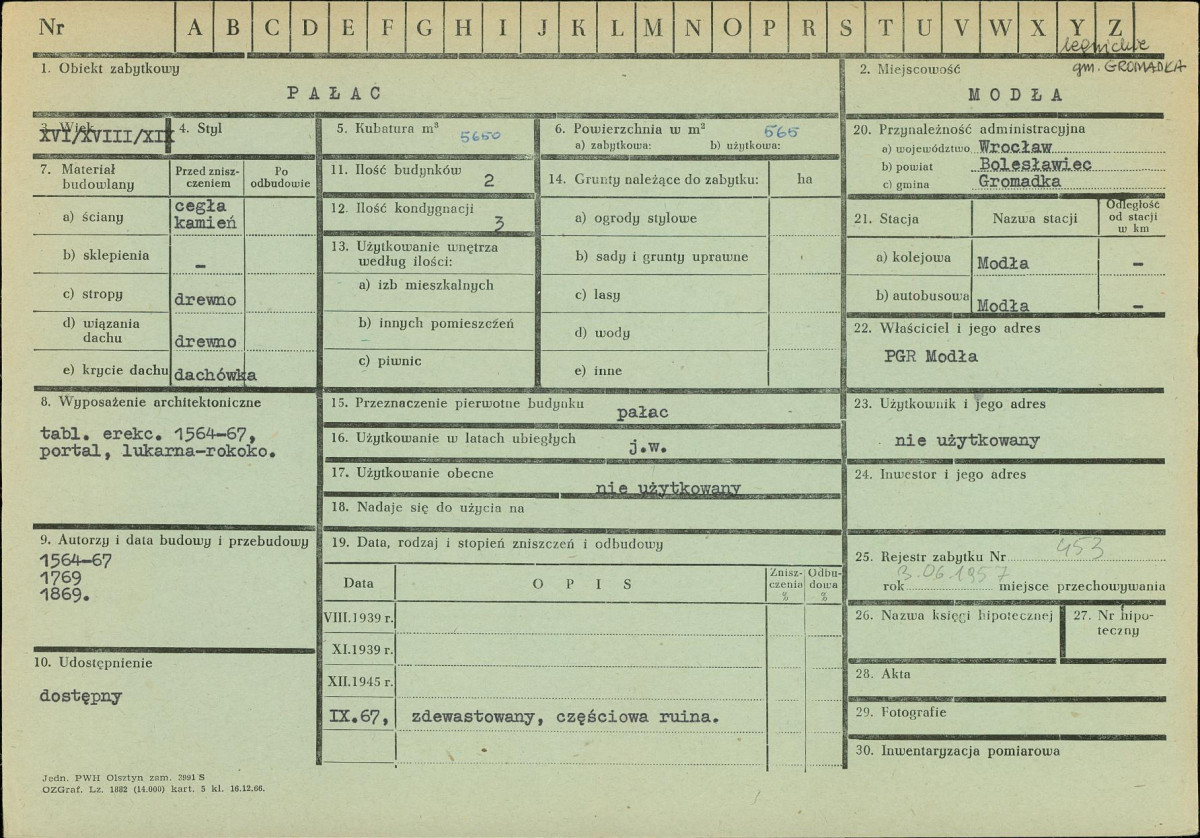 Nr A B C D E F G H I J K L M N O P R S T U V W X Y Z
legnickie
gm. GROMADKA
1. Obiekt zabytkowy
PAŁAC
2. Miejscowość
MODŁA
3. Wiek
XVI/XVIII/XIX
4. Styl
5. Kubatura m³ 5650
6. Powierzchnia w m² 565
a) zabytkowa: b) użytkowa:
7. Materiał budowlany
Przed zniszczeniem
Po odbudowie
a) ściany
cegła
kamień
b) sklepienia –
c) stropy drewno
d) wiązania dachu drewno
e) krycie dachu dachówka
11. Ilość budynków 2
12. Ilość kondygnacji 3
13. Użytkowanie wnętrza
według ilości:
a) izb mieszkalnych
b) innych pomieszczeń
c) piwnic
14. Grunty należące do zabytku: ha
a) ogrody stylowe
b) sady i grunty uprawne
c) lasy
d) wody
e) inne
20. Przynależność administracyjna
a) województwo Wrocław
b) powiat Bolesławiec
c) gmina Gromadka
21. Stacja
Nazwa stacji
Odległość od stacji w km
a) kolejowa Modła –
b) autobusowa Modła –
22. Właściciel i jego adres
PGR Modła
8. Wyposażenie architektoniczne
tabl. erekc. 1564-67,
portal, lukarna-rokoko.
15. Przeznaczenie pierwotne budynku pałac
16. Użytkowanie w latach ubiegłych j.w.
17. Użytkowanie obecne nie użytkowany
18. Nadaje się do użycia na
23. Użytkownik i jego adres
nie użytkowany
24. Inwestor i jego adres
9. Autorzy i data budowy i przebudowy
1564-67
1769
1869.
10. Udostępnienie
dostępny
19. Data, rodzaj i stopień zniszczeń i odbudowy
Data OPIS Zniszczenia % Odbudowa %
VIII.1939 r.
XI.1939 r.
XII.1945 r.
IX.67, zdewastowany, częściowa ruina.
25. Rejestr zabytku Nr 453
rok 3.06.1957 miejsce przechowywania
26. Nazwa księgi hipotecznej
27. Nr hipoteczny
28. Akta
29. Fotografie
30. Inwentaryzacja pomiarowa
Jedn. PWH Olsztyn zam. 3991 S
OZGraf. Lz. 1882 (14.000) kart. 5 kl. 16.12.66.